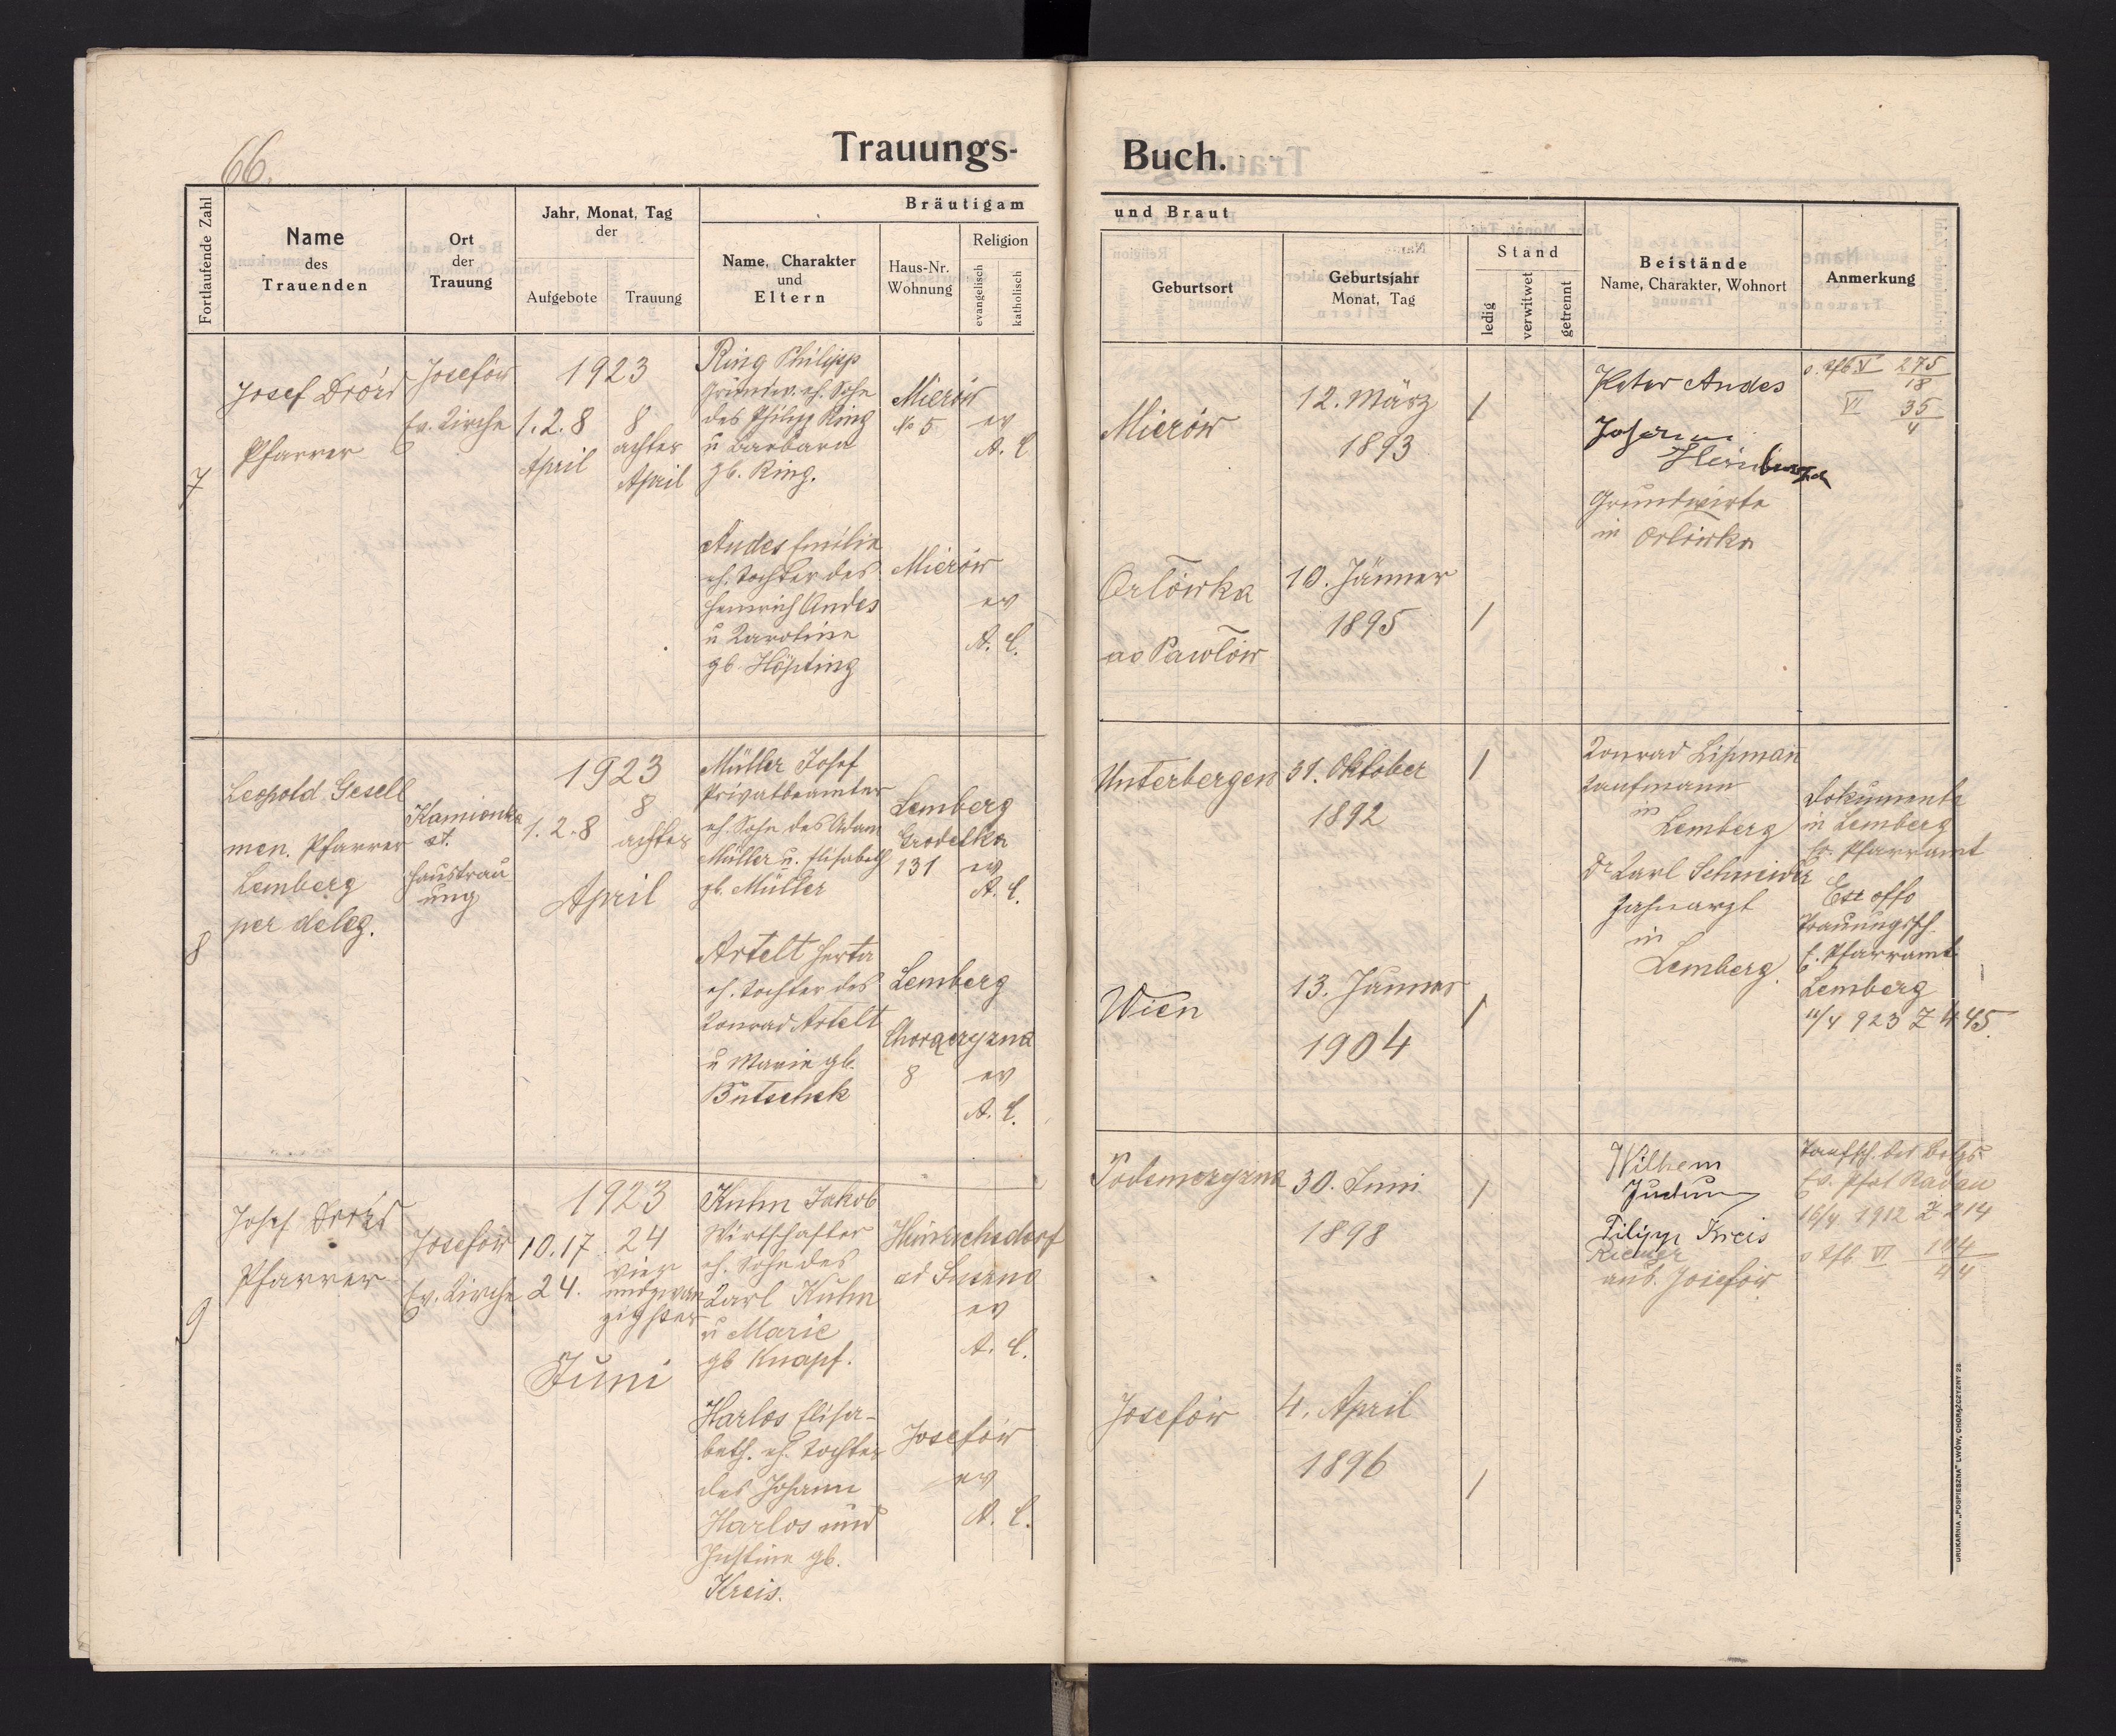 66.
Trauungs-
Buch.
Fortlaufende Zahl
Name
des
Trauenden
Ort
der
Trauung
Jahr, Monat, Tag
der
Aufgebote
Trauung
Bräutigam
Name, Charakter
und
Eltern
Haus-Nr.
Wohnung
Religion
evangelisch
katholisch
und Braut
Geburtsort
Geburtsjahr
Monat, Tag
Stand
ledig
verwitwet
getrennt
Beistände
Name, Charakter, Wohnort
Anmerkung
7
Josef
Pfarrer
Josefów
Ev. Kirche
1923
1. 2. 8
April
8
achter
April
Ring Philipp
Grundw. eh. Sohn
des Philipp Ring
u Barbara
gb. Ring.
Mierów
No 5
ev
A. C.
Mierów
12. März
1893
/
Peter Andes
Grundwirte
in Orlówka
275
18
VI 35
4
Andes Emilie
eh. Tochter des
Heinrich Andes
u Karoline
gb. Höpting
Mierów
ev
A. C.
Orlówka
ad Pawlów
10. Jänner
1895
/
8
Leopold Gesell
men. Pfarrer
Lemberg
per deleg.
Kamionka
st.
Haustrau-
ung
1923
1. 2. 8
8
achter
April
Müller Josef
Privatbeamter
eh. Sohn des Adam
Müller u. Elisabeth
gb. Müller
Lemberg
Grodecka
131
ev
A. C.
Unterbergen
31. Oktober
1892
/
Konrad Lipman
Kaufmann
in
Lemberg
Dr Karl Schneider
Zahnarzt
in
Lemberg.
Dokumente
in Lemberg
Ev. Pfarramt
Ex offo
Trauungssch.
E. Pfarramt
Lemberg
11/4 923 Z 445.
Artelt Herta
eh. Tochter des
Konrad Artelt
u Marie gb.
Butschek
Lemberg
Chorązczyzna
8
ev
A. C.
Wien
13. Jänner
1904
/
9
Josef
Pfarrer
Josefów
Ev. Kirche
1923
10. 17.
24.
24
vier
undzwan
zigster
Juni
Kuhn Jakob
Wirtschafter
eh. Sohn des
Karl Kuhn
u Marie
gb Knapf.
Heinrichsdorf
ad Suszno
ev
A. C.
Podemszczyzna
30. Juni
1898
/
Wilhem
Filipp Kreis
aus. Josefów
Taufsch. des Btgs
Ev. Pfot Radau
16/4 1912 Z 214
VI 104
44
Harlos Elisa-
beth. eh. Tochter
des Johann
Harlos und
Justine gb.
Kreis.
Josefów
ev
A. C.
Josefów
4. April
1896
/
DRUKARNIA „POSPIESZNA” LWÓW, CHORĄŻCZYZNY 28